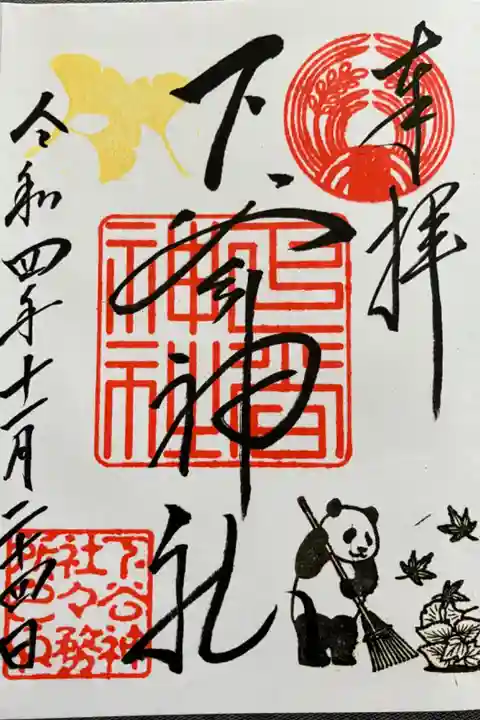 奉拝
下谷神社
令和四年十一月二十四日
下谷
神社
下谷神
社々務
所之印